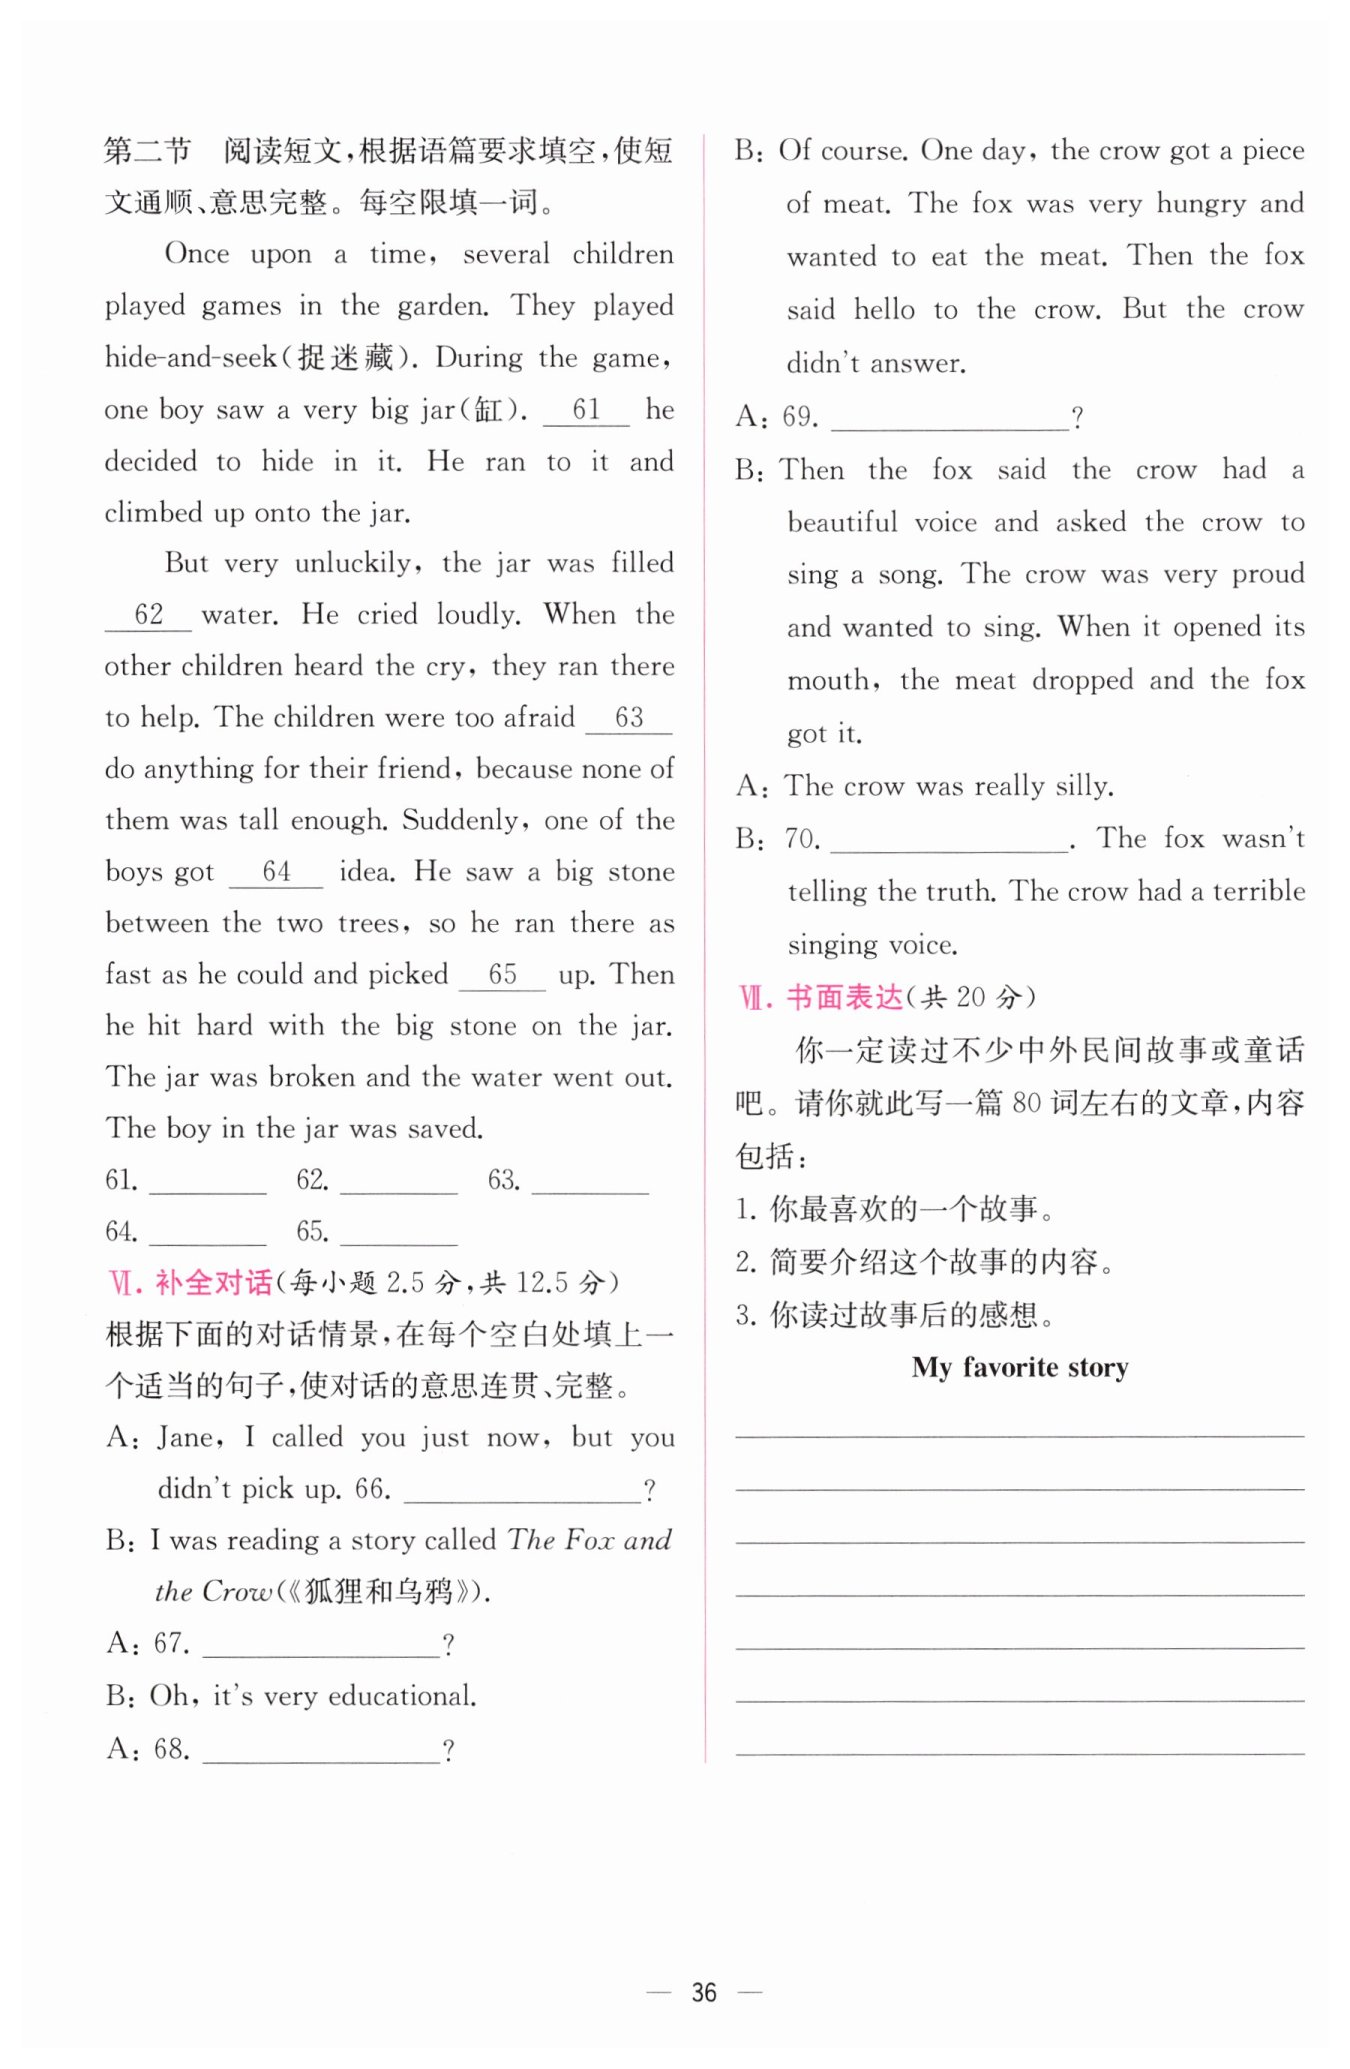 第二节　阅读短文,根据语篇要求填空,使短
文通顺、意思完整。每空限填一词。
Once upon a time, several children
played games in the garden. They played
hide-and-seek(捉迷藏). During the game,
one boy saw a very big jar(缸). 61 he
decided to hide in it. He ran to it and
climbed up onto the jar.
But very unluckily, the jar was filled
62 water. He cried loudly. When the
other children heard the cry, they ran there
to help. The children were too afraid 63
do anything for their friend, because none of
them was tall enough. Suddenly, one of the
boys got 64 idea. He saw a big stone
between the two trees, so he ran there as
fast as he could and picked 65 up. Then
he hit hard with the big stone on the jar.
The jar was broken and the water went out.
The boy in the jar was saved.
61. ________ 62. ________ 63. ________
64. ________ 65. ________
Ⅵ. 补全对话(每小题 2.5 分,共 12.5 分)
根据下面的对话情景,在每个空白处填上一
个适当的句子,使对话的意思连贯、完整。
A: Jane, I called you just now, but you
didn't pick up. 66. ________________?
B: I was reading a story called The Fox and
the Crow(《狐狸和乌鸦》).
A: 67. ________________?
B: Oh, it's very educational.
A: 68. ________________?
B: Of course. One day, the crow got a piece
of meat. The fox was very hungry and
wanted to eat the meat. Then the fox
said hello to the crow. But the crow
didn't answer.
A: 69. ________________?
B: Then the fox said the crow had a
beautiful voice and asked the crow to
sing a song. The crow was very proud
and wanted to sing. When it opened its
mouth, the meat dropped and the fox
got it.
A: The crow was really silly.
B: 70. ________________. The fox wasn't
telling the truth. The crow had a terrible
singing voice.
Ⅶ. 书面表达(共 20 分)
你一定读过不少中外民间故事或童话
吧。请你就此写一篇 80 词左右的文章,内容
包括:
1. 你最喜欢的一个故事。
2. 简要介绍这个故事的内容。
3. 你读过故事后的感想。
My favorite story
— 36 —